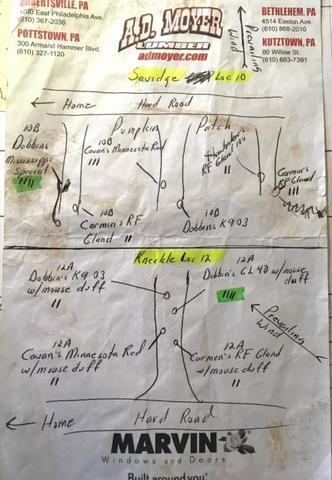 GILBERTSVILLE, PA
1200 East Philadelphia Ave.
(610) 367-2036
POTTSTOWN, PA
300 Armand Hammer Blvd.
(610) 327-1120
A.D. MOYER
LUMBER
admoyer.com
BETHLEHEM, PA
4514 Easton Ave.
(610) 868-2010
KUTZTOWN, PA
80 Willow St.
(610) 683-7391
Prevailing
Wind
Savidge Loc 10
Home Hard Road
Pumpkin Patch
10B
Dobbins
Mississippi
Special
10B
Cavan's Minnesota Red
III
RF Gland
Carmen's
RF Gland
III
Carmin's RF
Gland II
10B
Dobbin's K9 03
Kneckle Loc 12
12A
Dobbin's K9 03
w/mouse duff
II
12A
Dobbin's GL 40 w/mouse
duff
Prevailing
Wind
12A
Cavan's Minnesota Red
w/mouse duff
II
12A
Carmen's RF Gland
w/mouse duff
II
Home Hard Road
MARVIN
Windows and Doors
Built around you